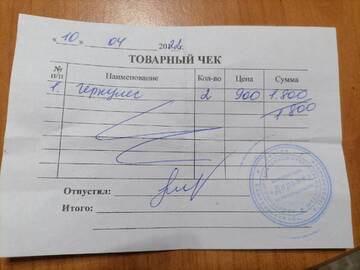 « 10 » 04 2022г.
ТОВАРНЫЙ ЧЕК
№ п/п Наименование Кол-во Цена Сумма
1. Геркулес 2 900 1.800
1 800
Отпустил:
Итого: